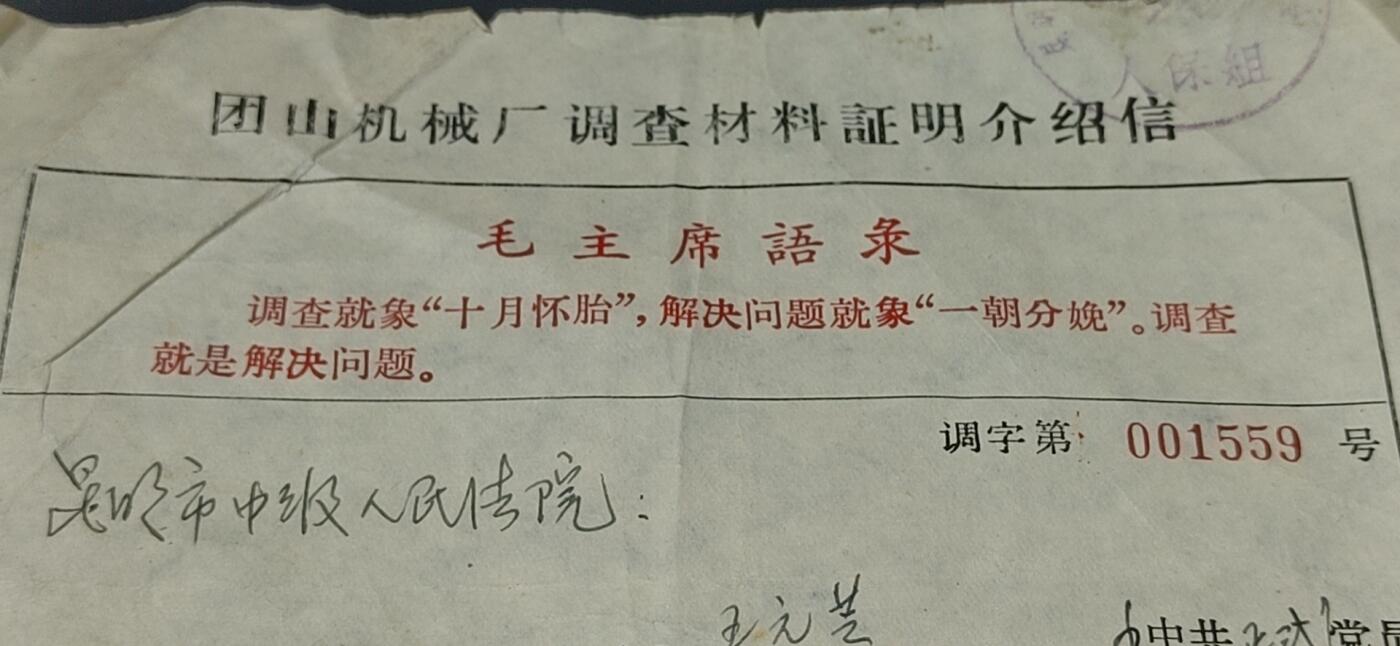 人保组
团山机械厂调查材料証明介绍信
毛主席語录
调查就象“十月怀胎”，解决问题就象“一朝分娩”。调查
就是解决问题。
调字第 001559 号
昆明市中级人民法院：
王元芸 中共正式党员